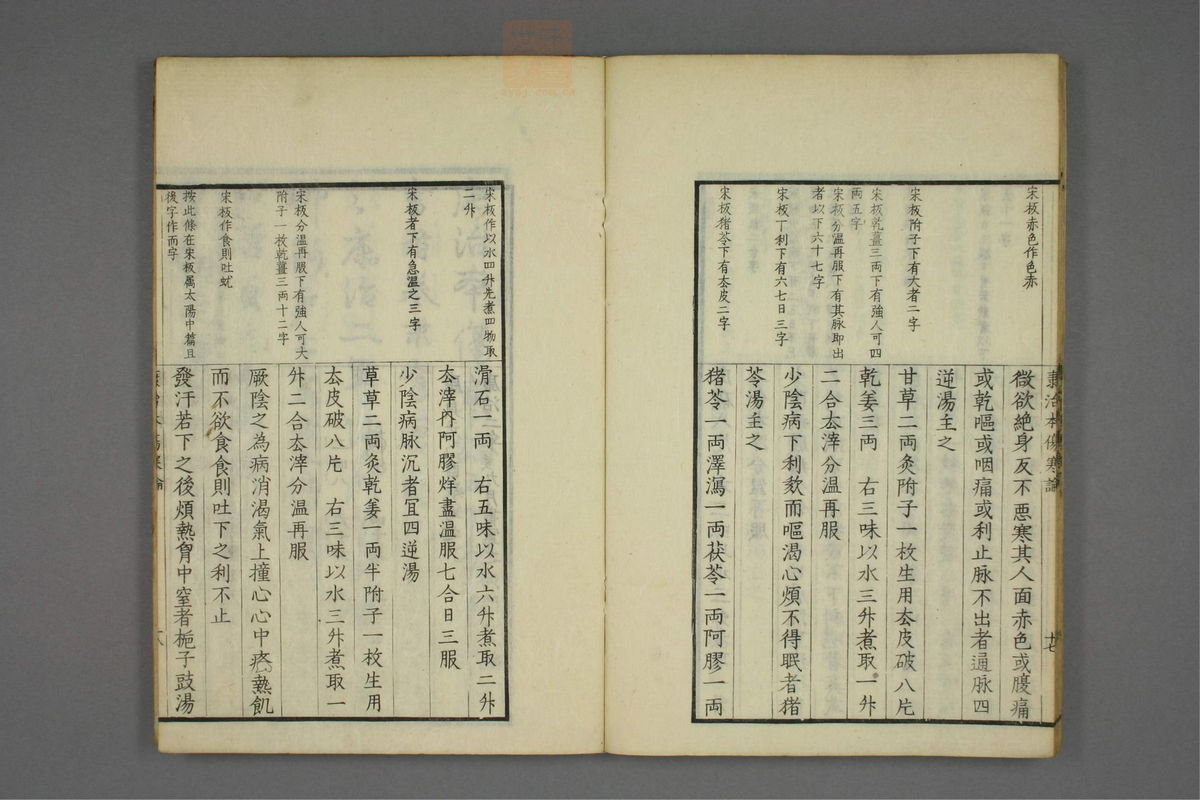 康治本傷寒論
十七
宋板赤色作色赤
宋板附子下有大者二字
宋板乾薑三兩下有強人可四
兩五字
宋板分温再服下有其脉即出
者以下六十七字
宋板丁利下有六七日三字
宋板猪苓下有厺皮二字
微欲絶身反不悪寒其人面赤色或腹痛
或乾嘔或咽痛或利止脉不出者通脉四
逆湯主之
甘草二兩灸附子一枚生用厺皮破八片
乾姜三兩　右三味以水三升煮取一升
二合厺滓分温再服
少陰病下利欬而嘔渴心煩不得眠者猪
苓湯主之
猪苓一兩澤瀉一兩茯苓一兩阿膠一兩
宋板作以水四升先煮四物取
二升
宋板者下有急温之三字
宋板分温再服下有強人可大
附子一枚乾薑三兩十二字
宋板作食則吐蚘
按此條在宋板属太陽中篇且
後字作而字
滑石一兩　右五味以水六升煮取二升
厺滓内阿膠烊盡温服七合日三服
少陰病脉沉者宜四逆湯
草草二兩灸乾姜一兩半附子一枚生用
厺皮破八片　右三味以水三升煮取一
升二合厺滓分温再服
厥陰之為病消渴氣上撞心心中疼熱飢
而不欲食食則吐下之利不止
發汗若下之後煩熱胷中窒者梔子豉湯